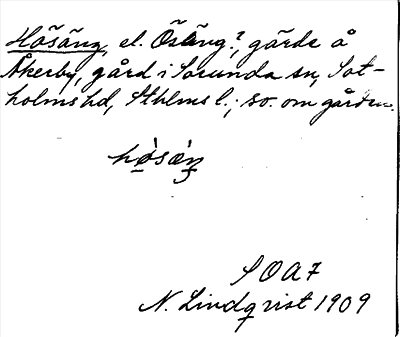 Hösäng, el. Ösäng?, gärde å
Åkerby, gård i Sorunda sn, Sot-
holms hd, Sthlms l.; so. om gården.
hø̀sæ̀ŋ
SOA7
N. Lindqvist 1909